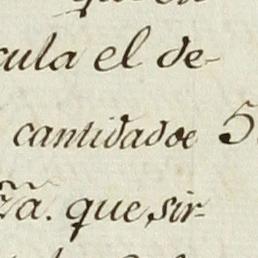 cula el de-
cantidad de 5
za. que sir-